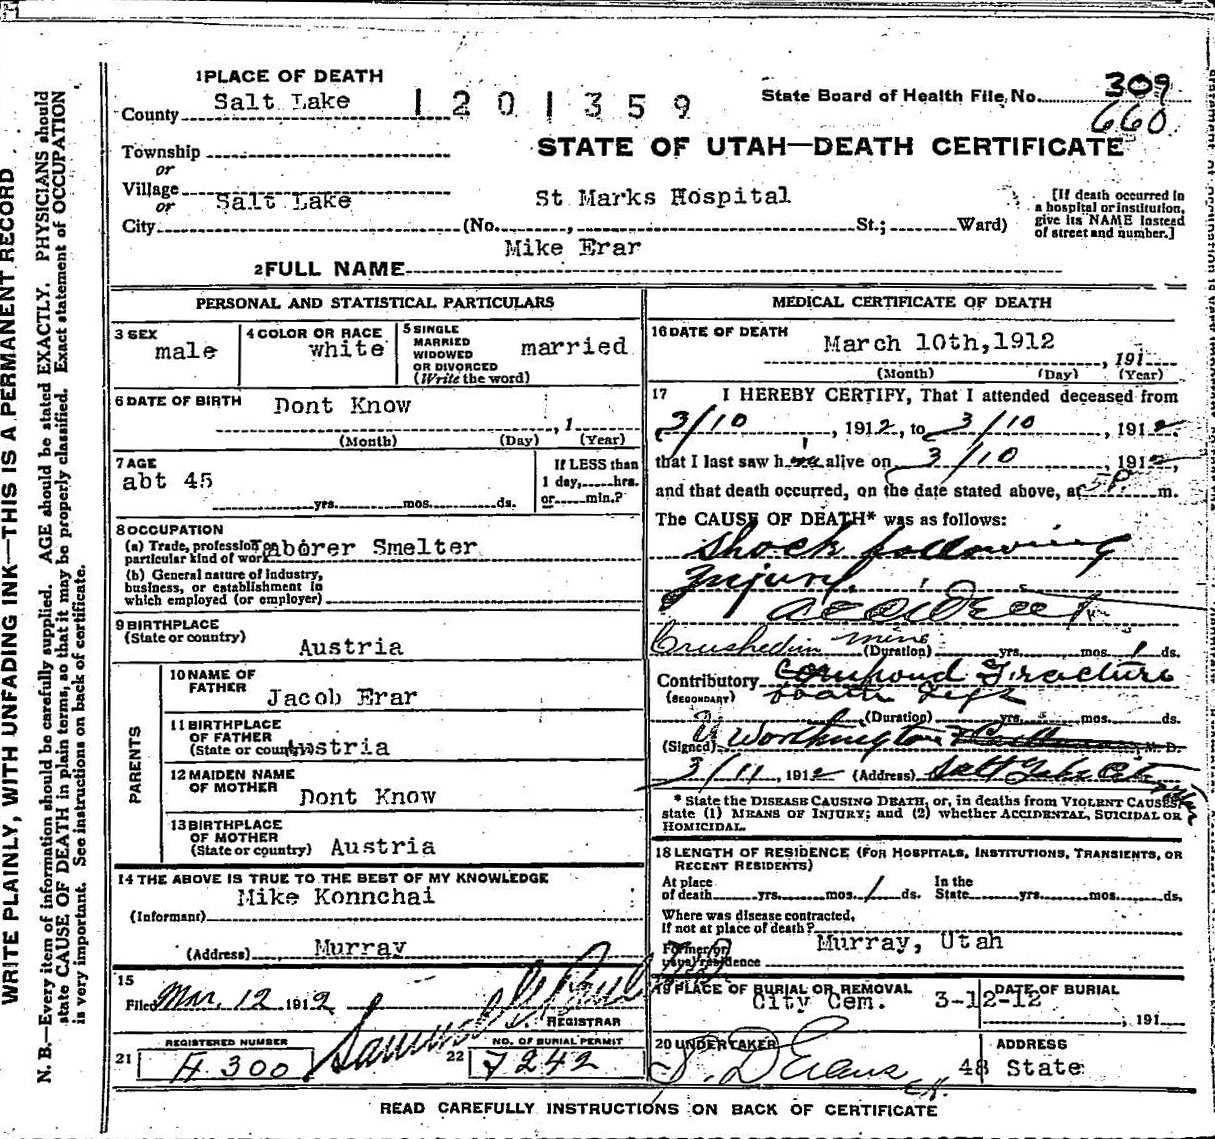 1 PLACE OF DEATH
County Salt Lake 1201359 State Board of Health File No. 309
660
STATE OF UTAH—DEATH CERTIFICATE
Township
or
Village
or
City Salt Lake (No. St Marks Hospital St.; Ward)
[If death occurred in
a hospital or institution,
give its NAME instead
of street and number.]
2 FULL NAME Mike Erar
WRITE PLAINLY, WITH UNFADING INK—THIS IS A PERMANENT RECORD
N. B.—Every item of information should be carefully supplied. AGE should be stated EXACTLY. PHYSICIANS should
state CAUSE OF DEATH in plain terms, so that it may be properly classified. Exact statement of OCCUPATION
is very important. See instructions on back of certificate.
PERSONAL AND STATISTICAL PARTICULARS
3 SEX male
4 COLOR OR RACE white
5 SINGLE
MARRIED
WIDOWED
OR DIVORCED
(Write the word) married
6 DATE OF BIRTH Dont Know , 1
(Month) (Day) (Year)
7 AGE abt 45
yrs. mos. ds.
If LESS than
1 day, hrs.
or min.?
8 OCCUPATION
(a) Trade, profession or
particular kind of work Laborer Smelter
(b) General nature of industry,
business, or establishment in
which employed (or employer)
9 BIRTHPLACE
(State or country) Austria
PARENTS
10 NAME OF
FATHER Jacob Erar
11 BIRTHPLACE
OF FATHER
(State or country) Austria
12 MAIDEN NAME
OF MOTHER Dont Know
13 BIRTHPLACE
OF MOTHER
(State or country) Austria
14 THE ABOVE IS TRUE TO THE BEST OF MY KNOWLEDGE
(Informant) Mike Konnchai
(Address) Murray
15
Filed Mar, 12 1912
REGISTRAR
21 REGISTERED NUMBER H 300
22 NO. OF BURIAL PERMIT 7242
MEDICAL CERTIFICATE OF DEATH
16 DATE OF DEATH
March 10th,1912 , 191
(Month) (Day) (Year)
17 I HEREBY CERTIFY, That I attended deceased from
3/10 , 1912, to 3/10 , 1912,
that I last saw him alive on 3/10 , 1912,
and that death occurred, on the date stated above, at 5P. m.
The CAUSE OF DEATH* was as follows:
Shock following
Injury.
accident
Crushed in mine
(Duration) yrs. mos. 1 ds.
Contributory Compound Fracture
(SECONDARY) both legs
(Duration) yrs. mos. ds.
(Signed) Worthington M. D.
3/11, 1912 (Address) Salt Lake City
Utah
* State the DISEASE CAUSING DEATH, or, in deaths from VIOLENT CAUSES,
state (1) MEANS OF INJURY; and (2) whether ACCIDENTAL, SUICIDAL OR
HOMICIDAL.
18 LENGTH OF RESIDENCE (FOR HOSPITALS, INSTITUTIONS, TRANSIENTS, OR
RECENT RESIDENTS)
At place
of death yrs. mos. 1 ds. In the
State yrs. mos. ds.
Where was disease contracted,
If not at place of death?
Former or
usual residence Murray, Utah
19 PLACE OF BURIAL OR REMOVAL City Cem.
DATE OF BURIAL 3-12-12 , 191
20 UNDERTAKER Evans
ADDRESS
48 State
READ CAREFULLY INSTRUCTIONS ON BACK OF CERTIFICATE